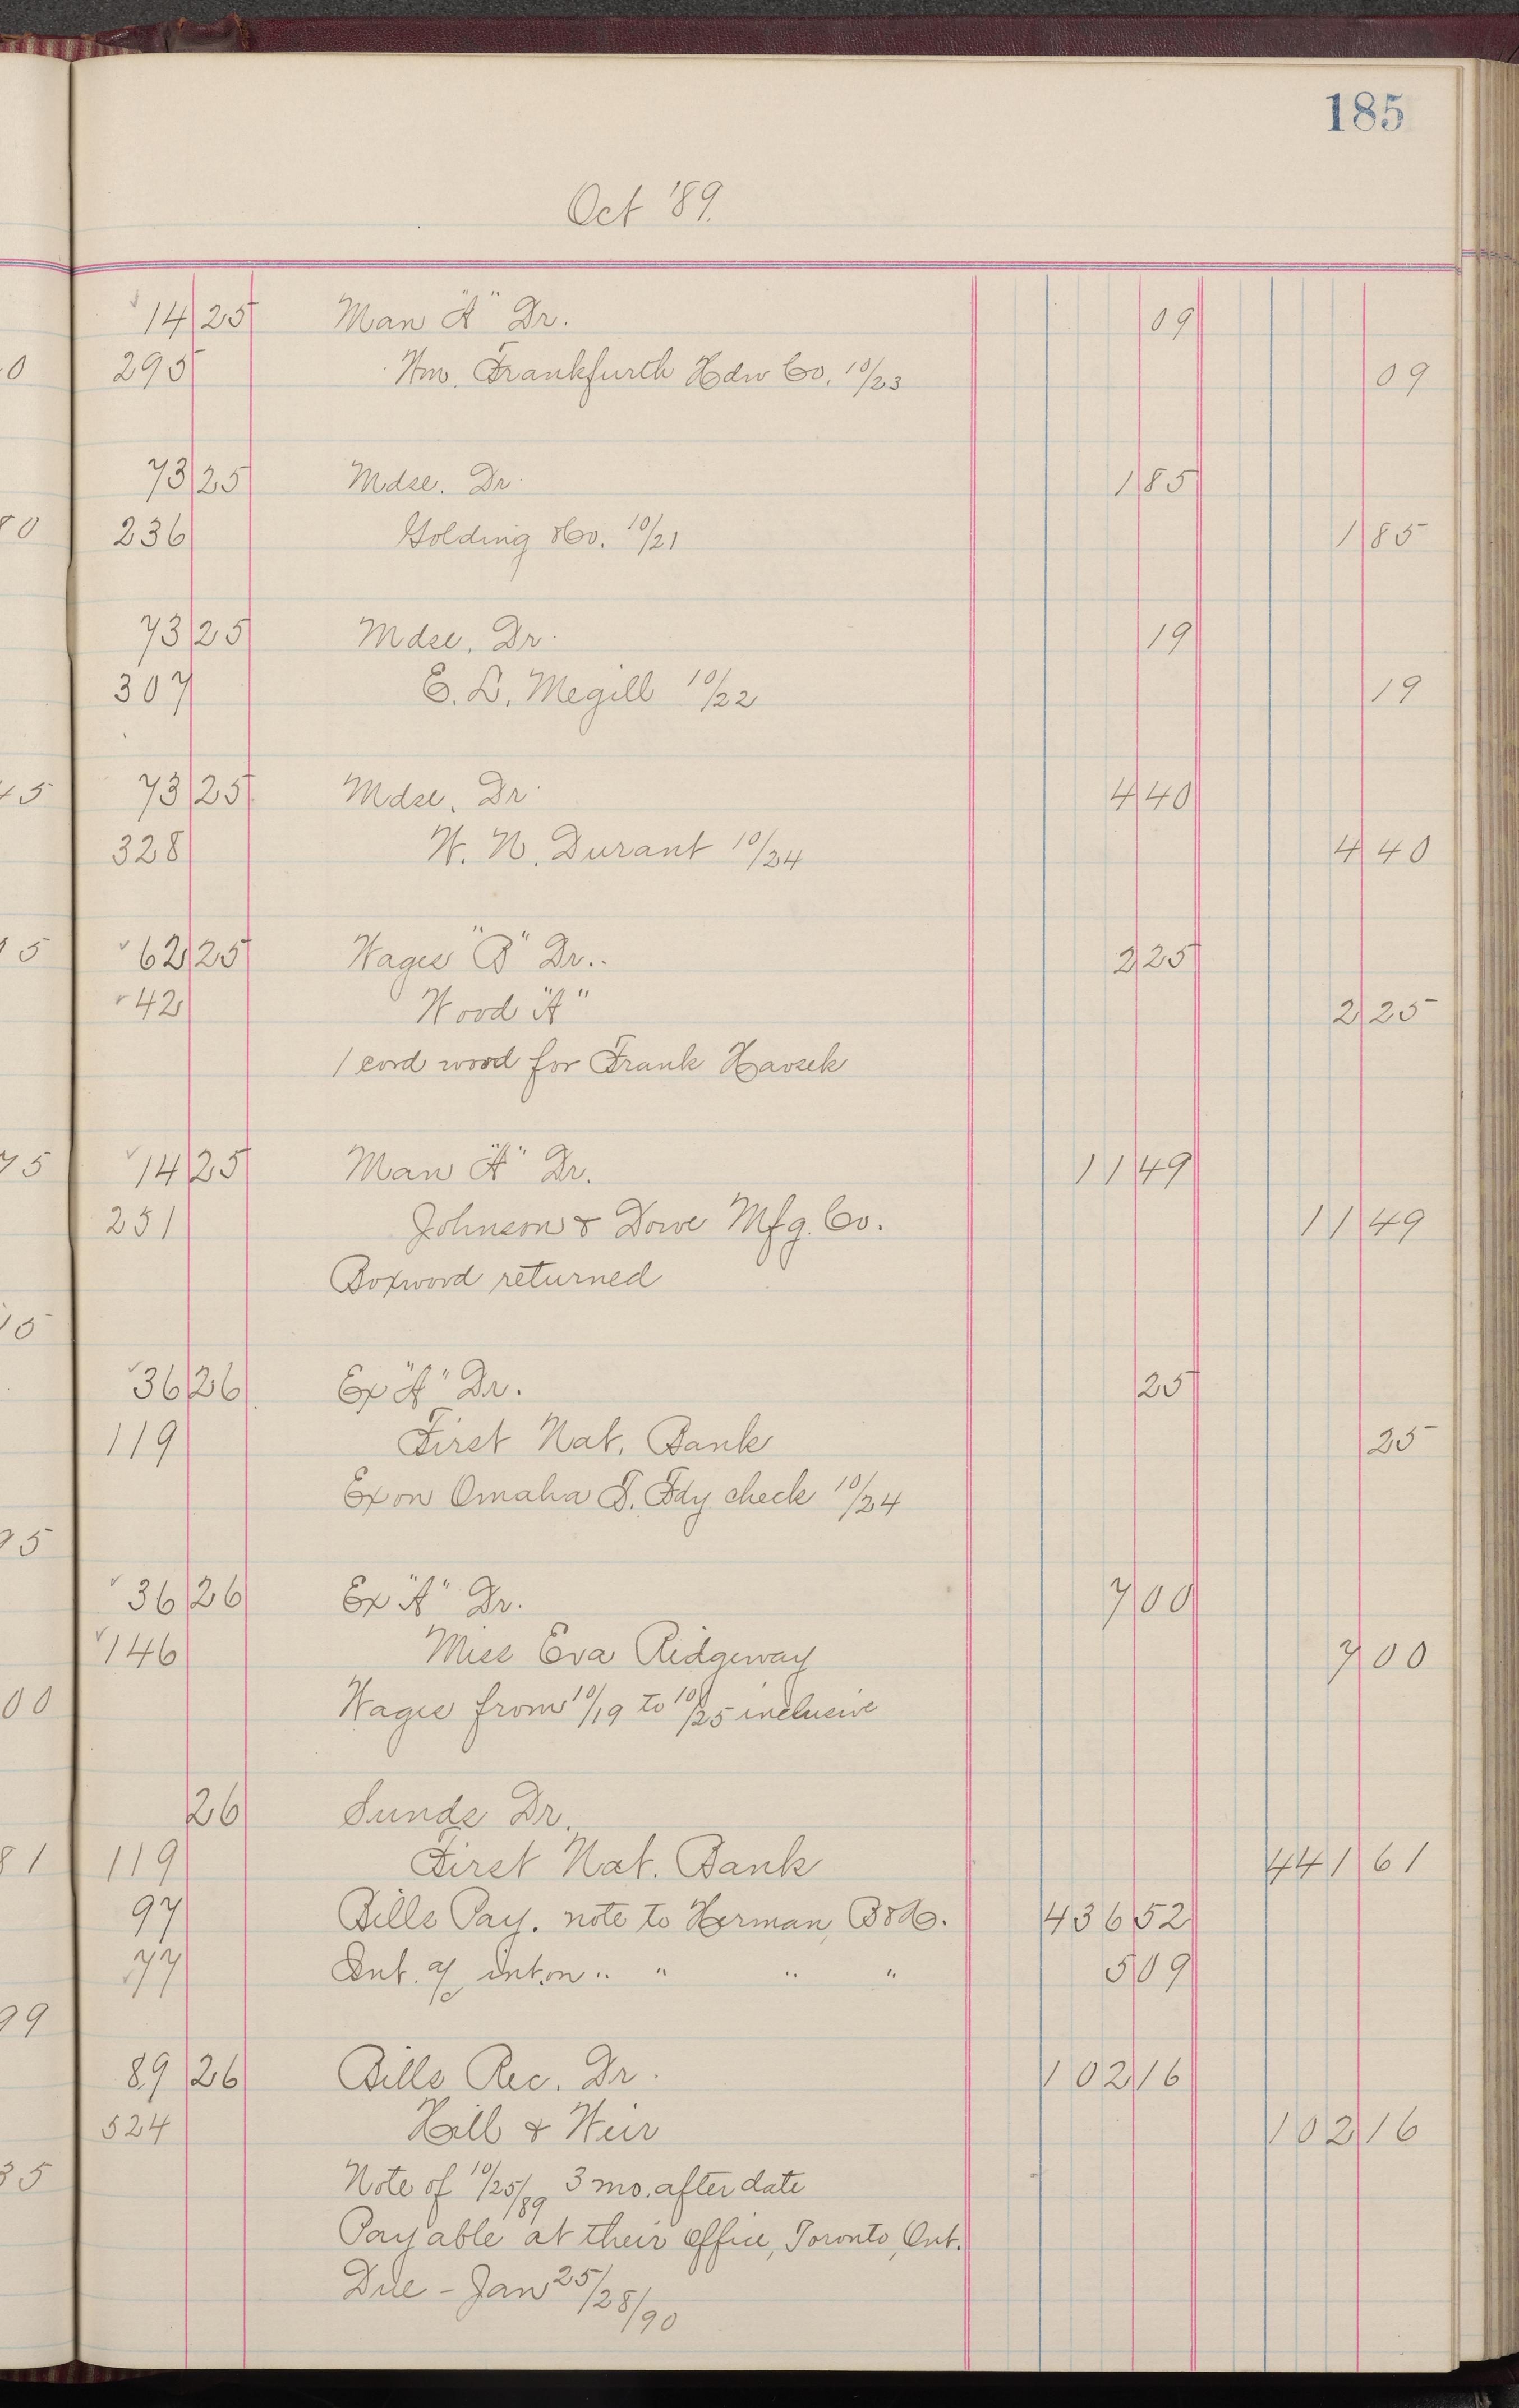 185
Oct '89.
14 25 Man "A" Dr. 09
295 Wm. Frankfurth Hdw Co. 10/23 09
73 25 Mdse. Dr. 1 85
236 Golding & Co. 10/21 1 85
73 25 Mdse. Dr. 19
307 E. L. Megill 10/22 19
73 25 Mdse. Dr. 4 40
328 W. N. Durant 10/24 4 40
62 25 Wages "B" Dr. 2 25
42 Wood "A" 2 25
1 cord wood for Frank
14 25 Man "A" Dr. 11 49
251 Johnson & Dowe Mfg. Co. 11 49
Boxwood returned
36 26 Ex "A" Dr. 25
119 First Nat. Bank 25
Ex on Omaha T. Fdy check 10/24
36 26 Ex "A" Dr. 7 00
146 Miss Eva Ridgeway 7 00
Wages from 10/19 to 10/25 inclusive
26 Sunds Dr.
119 First Nat. Bank 441 61
97 Bills Pay. note to Herman, B & Co. 436 52
77 Int. a/c int. on " " " " 5 09
89 26 Bills Rec. Dr. 102 16
524 Hill & Weir 102 16
Note of 10/25/89 3 mo. after date
Payable at their office, Toronto, Ont.
Due - Jan 25/28/90